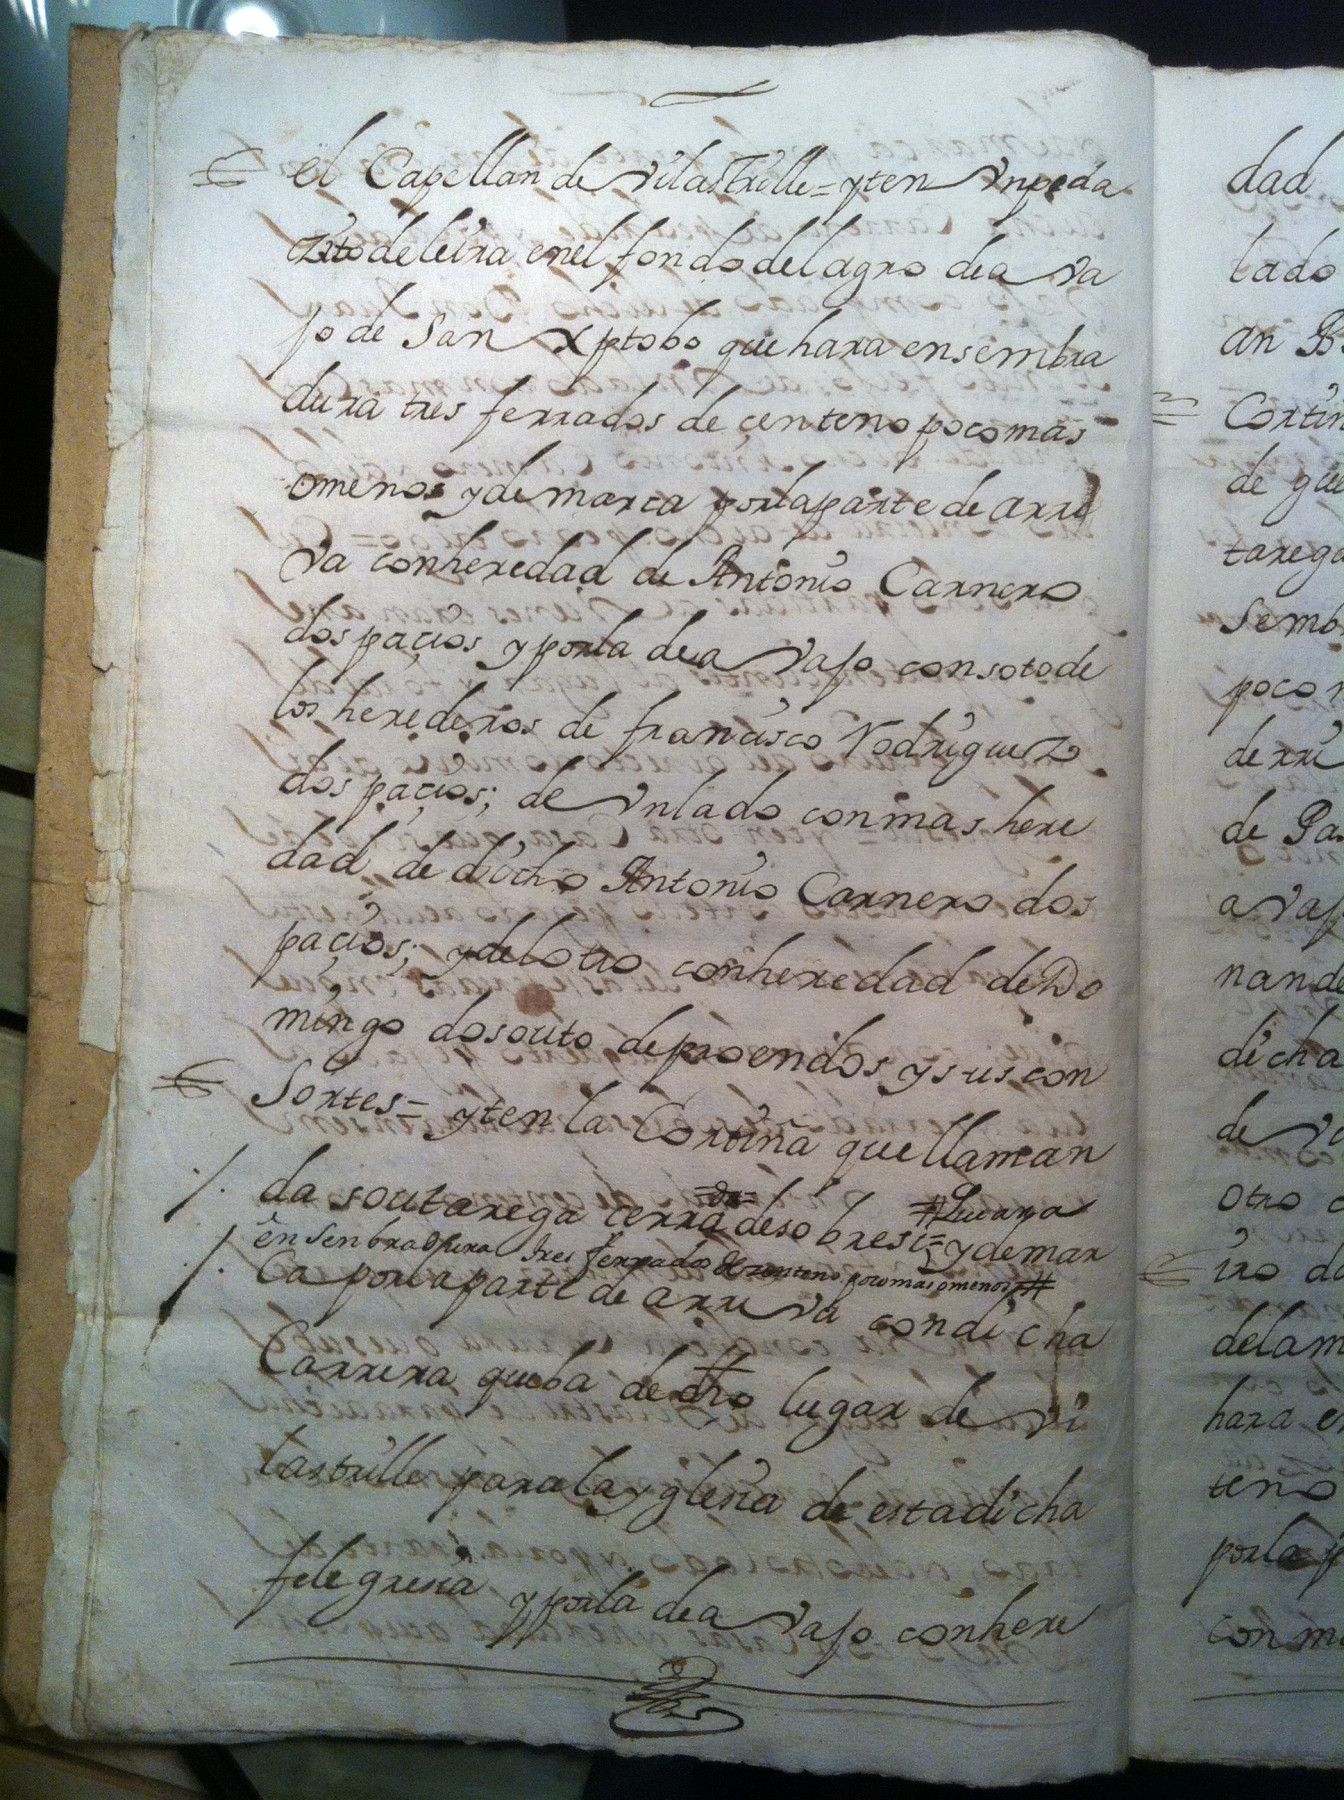 el Capellan de vilastrille = yten vn peda
zito de leira en el fondo del agro de a va
jo de San Xptobo que hara en sembra
dura tres ferrados de çenteno poco mas
o menos y demarca por la parte de arri
va con heredad de Antonio Carnero
dos paçios y por la de a vajo con soto de
los herederos de francisco Rodriguez
dos paçios; de vn lado con mas here
dad de dicho Antonio Carnero dos
paçios; y del otro con heredad de Do
mingo do souto de proendos y sus con
sortes = yten la Cortiña que llaman
da soutarega cerrada de sobre si = # Lleuara
en senbradura tres ferrados de zenteno poco mas o menos #
y demar
Ca por la parte de arriva con dicha
Carrera que ba de dho lugar de vi
lastrille para la yglesia de esta dicha
felegresia y por la de a vajo con here
dad
lado
an
Cortin
de que
tarega
Semb
poco
derri
de Pa
a vaj
nande
dicha
de
otro
iro da
delam
hara en
teno
por la p
con m